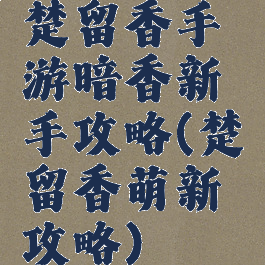 楚留香手
游暗香新
手攻略(楚
留香萌新
攻略)